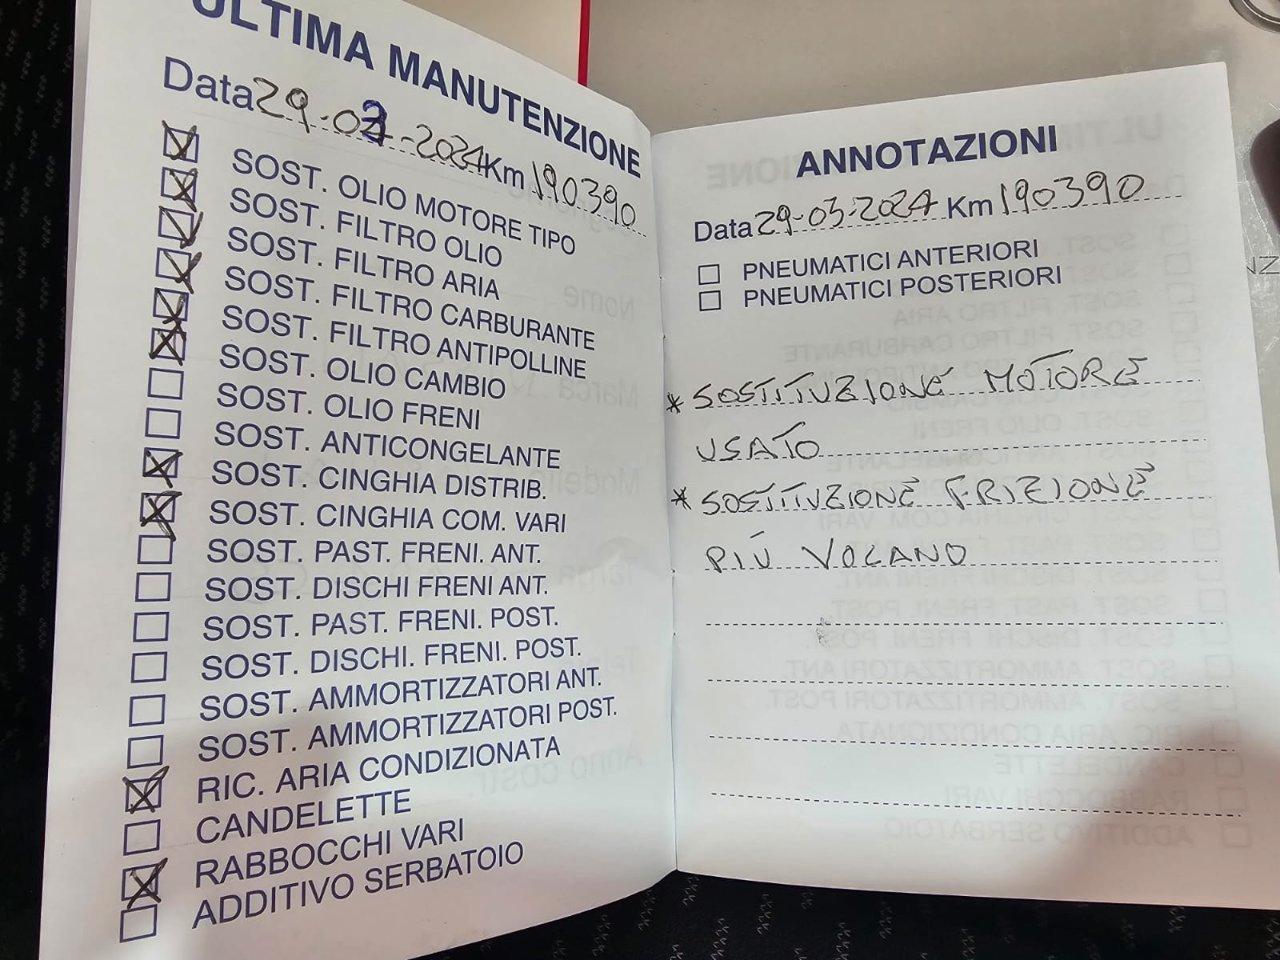 ULTIMA MANUTENZIONE
Data 29-03-2024 Km 190390
SOST. OLIO MOTORE TIPO
SOST. FILTRO OLIO
SOST. FILTRO ARIA
SOST. FILTRO CARBURANTE
SOST. FILTRO ANTIPOLLINE
SOST. OLIO CAMBIO
SOST. OLIO FRENI
SOST. ANTICONGELANTE
SOST. CINGHIA DISTRIB.
SOST. CINGHIA COM. VARI
SOST. PAST. FRENI. ANT.
SOST. DISCHI FRENI ANT.
SOST. PAST. FRENI. POST.
SOST. DISCHI. FRENI. POST.
SOST. AMMORTIZZATORI ANT.
SOST. AMMORTIZZATORI POST.
RIC. ARIA CONDIZIONATA
CANDELETTE
RABBOCCHI VARI
ADDITIVO SERBATOIO
ANNOTAZIONI
Data 29-03-2024 Km 190390
PNEUMATICI ANTERIORI
PNEUMATICI POSTERIORI
* SOSTITUZIONE MOTORE
USATO
* SOSTITUZIONE FRIZIONE
PIÙ VOLANO